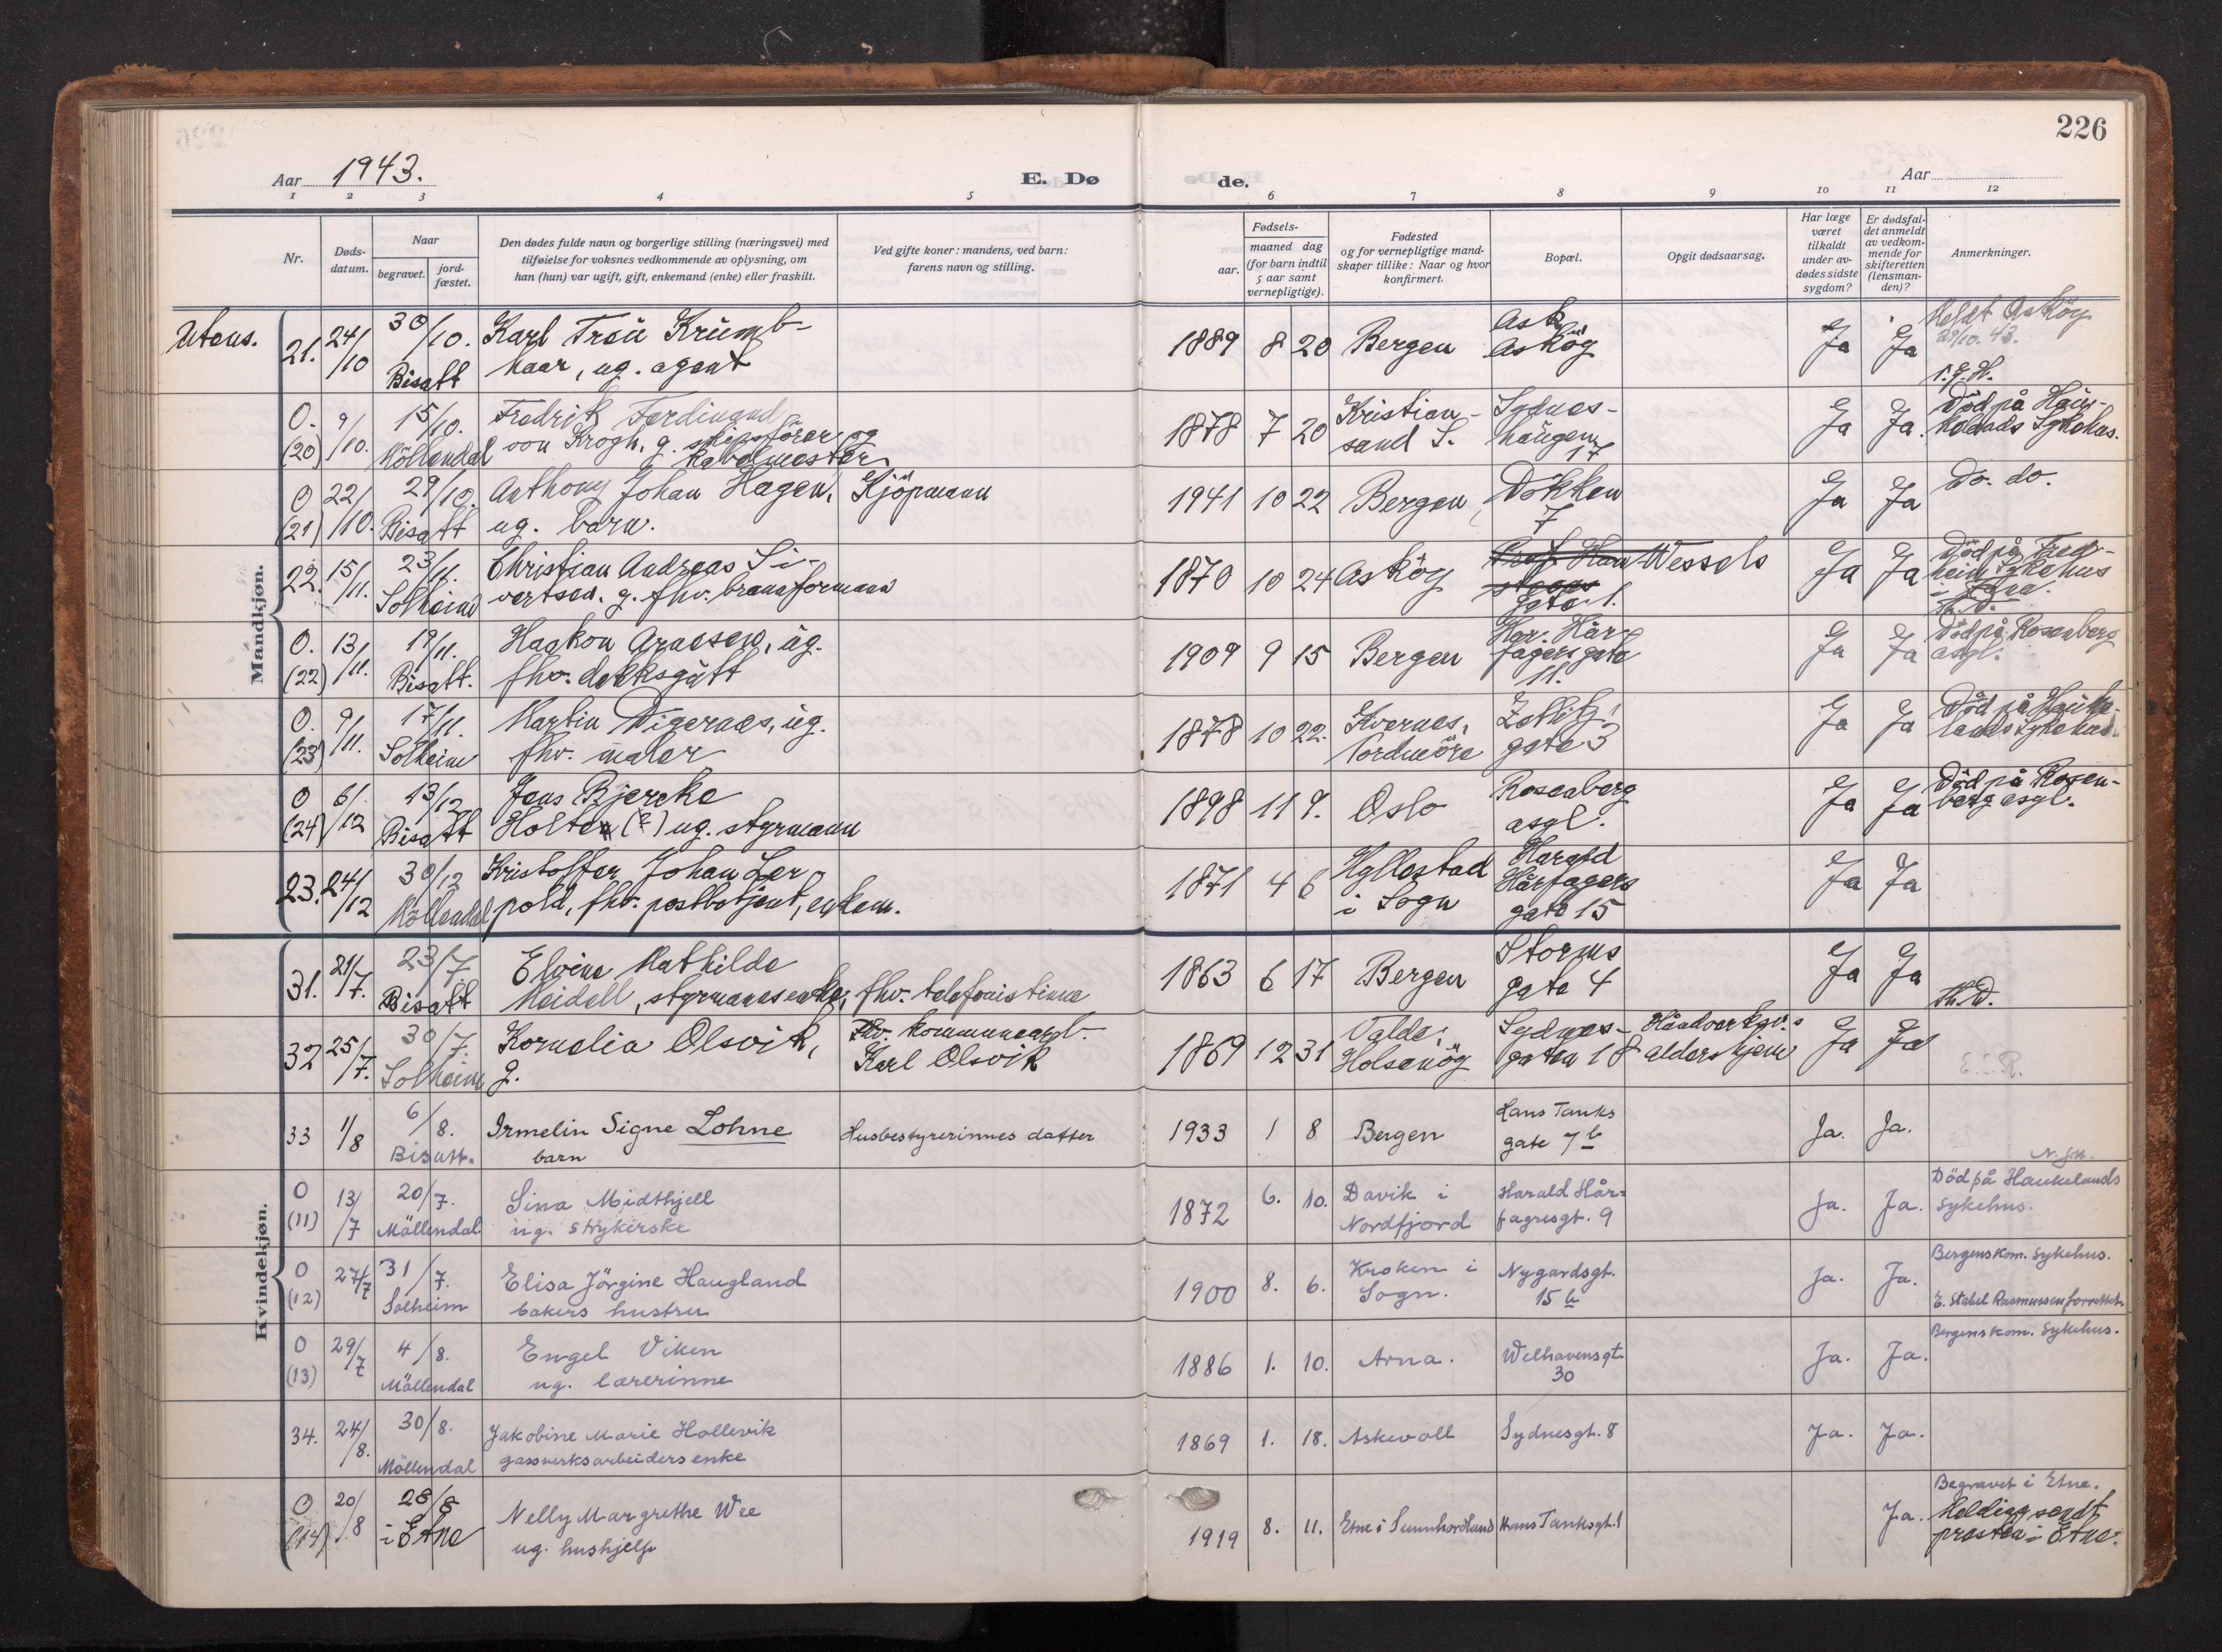 226
Aar 1943.
E. Dø
de.
Aar
1 2 3 4 5 6 7 8 9 10 11 12
Nr.
Døds-
datum.
Naar
begravet.
jord-
fæstet.
Den dødes fulde navn og borgerlige stilling (næringsvei) med
tilføielse for voksnes vedkommende av oplysning, om
han (hun) var ugift, gift, enkemand (enke) eller fraskilt.
Ved gifte koner: mandens, ved barn:
farens navn og stilling.
Fødsels-
aar.
maaned dag
(for barn indtil
5 aar samt
vernepligtige).
Fødested
og for vernepligtige mand-
skaper tillike: Naar og hvor
konfirmert.
Bopæl.
Opgit dødsaarsag.
Har læge
været
tilkaldt
under av-
dødes sidste
sygdom?
Er dødsfal-
det anmeldt
av vedkom-
mende for
skifteretten
(lensman-
den)?
Anmerkninger.
Mandkjøn.
Utens.
21. 24/10 30/10. Bisatt
Karl Trou Krumb-
haar, ug. agent
1889 8 20 Bergen
Ask
Asköy
Ja Ja
Meldt Asköy
29/10. 43.
O. (20) 9/10. 15/10. Möllendal
Fredrik Ferdinand
von Krogh, g. skipsförer og
kabelmester
1878 7 20
Kristian-
sand S.
Sydnes-
haugen
17
Ja Ja.
Död på Hau-
kelands Sykehus.
O (21) 22/10. 29/10. Bisatt
Anthony Johan Hagen,
ug. barn.
Kjöpmann
1941 10 22 Bergen
Dokken
7
Ja Ja
Do. do.
22. 15/11. 23/11. Solheim
Christian Andreas Si-
vertsen. g. fhv. brannformann
1870 10 24 Asköy
Wessels
gate 1.
Ja Ja
Död på
Sykehus
O. (22) 13/11. 19/11. Bisatt.
Haakon Arnesen, ug.
fhv. dekksgutt
1909 9 15 Bergen
Har. Hår-
fagersgate
11.
Ja Ja
Död på Rosenberg
asyl.
O. (23) 9/11. 17/11. Solheim
Martin Digernes, ug.
fhv. maler
1878 10 22.
Kvernes,
Nordmöre
Zetlitz'
gate 3
Ja Ja
Död på Hauke-
lands Sykehus.
O (24) 6/12 13/12 Bisatt
Jens Bjercke
Holte (?) ug. styrmann
1898 11 9. Oslo
Rosenberg
asyl.
Ja Ja
Död på Rosen-
berg asyl.
23. 24/12 30/12 Möllendal
Kristoffer Johan Ler
pold, fhv. postbetjent, enkem.
1871 4 6
Hyllestad
i Sogn
Harald
Hårfagers
gate 15
Ja Ja
Kvindekjøn.
31. 21/7. 23/7. Bisatt
Elvine Mathilde
Meidell, styrmannsenke, fhv. telefonistinne
1863 6 17 Bergen
Storms
gate 4
Ja Ja
Th.D.
32 25/7. 30/7. Solheim
Kornelia Olsvik,
g.
Fhv. kommunearb.
Karl Olsvik
1869 12 31
Valde,
Holsenöy
Sydnes-
gaten 18
Håndverksv.
aldershjem
Ja Ja
33 1/8 6/8. Bisatt.
Irmelin Signe Lohne
barn
Husbestyrerinnes datter
1933 1 8 Bergen
Hans Tanks
gate 7 b
Ja. Ja.
O (11) 13/7 20/7. Möllendal.
Sina Midthjell
ug. strykerske
1872 6. 10.
Davik i
Nordfjord
Harald Hår-
fagresgt. 9
Ja. Ja.
Död på Haukelands
sykehus.
O (12) 27/7 31/7. Solheim
Elisa Jörgine Haugland
bakers hustru
1900 8. 6.
Kroken i
Sogn.
Nygardsgt.
15 b
Ja. Ja.
Bergens kom. sykehus.
E. Stabel Rasmussen forrettet
O (13) 29/7 4/8. Möllendal
Engel Viken
ug. lærerinne
1886 1. 10. Arna.
Welhavensgt.
30
Ja. Ja.
Bergens kom. sykehus.
34. 24/8. 30/8. Möllendal
Jakobine Marie Hollevik
gassverksarbeiders enke
1869 1. 18. Askevoll
Sydnesgt. 8
Ja. Ja.
O (14) 20/8 28/8 i Etne
Nelly Margrethe Wee
ug. hushjelp
1919 8. 11. Etne i Sunnhordland
Hans Tanksgt. 1
Ja.
Begravet i Etne.
Melding sendt
presten i Etne.